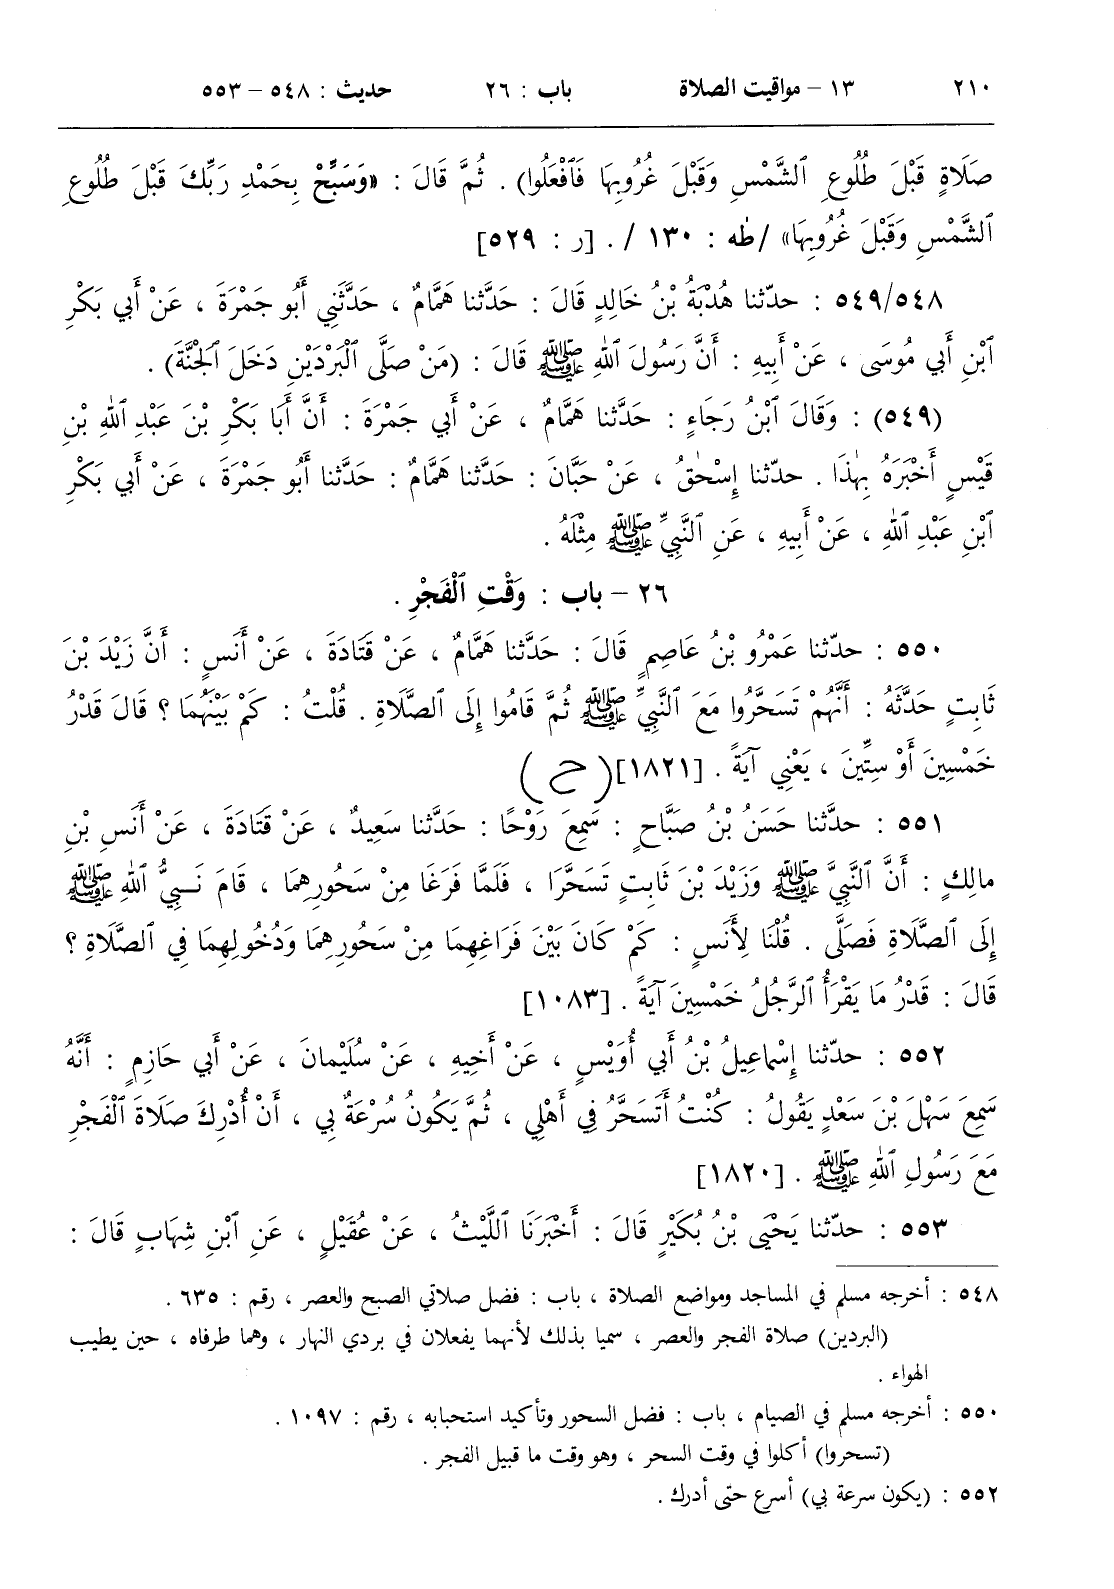 ٢١٠ ١٣ – مواقيت الصلاة باب : ٢٦ حديث : ٥٤٨ – ٥٥٣
صَلَاةٍ قَبْلَ طُلُوعِ ٱلشَّمْسِ وَقَبْلَ غُرُوبِهَا فَٱفْعَلُوا) . ثُمَّ قَالَ : «وَسَبِّحْ بِحَمْدِ رَبِّكَ قَبْلَ طُلُوعِ
ٱلشَّمْسِ وَقَبْلَ غُرُوبِهَا» /طٰه : ١٣٠ / . [ر : ٥٢٩]
٥٤٩/٥٤٨ : حدّثنا هُدْبَةُ بْنُ خَالِدٍ قَالَ : حَدَّثنا هَمَّامٌ ، حَدَّثَنِي أَبُو جَمْرَةَ ، عَنْ أَبي بَكْرِ
ٱبْنِ أَبي مُوسَى ، عَنْ أَبِيهِ : أَنَّ رَسُولَ ٱللهِ ﷺ قَالَ : (مَنْ صَلَّى ٱلْبَرْدَيْنِ دَخَلَ ٱلْجَنَّةَ) .
(٥٤٩) : وَقَالَ ٱبْنُ رَجَاءٍ : حَدَّثنا هَمَّامٌ ، عَنْ أَبي جَمْرَةَ : أَنَّ أَبَا بَكْرِ بْنَ عَبْدِ ٱللهِ بْنِ
قَيْسٍ أَخْبَرَهُ بِهٰذَا . حدّثنا إِسْحٰقُ ، عَنْ حَبَّانَ : حَدَّثنا هَمَّامٌ : حَدَّثنا أَبُو جَمْرَةَ ، عَنْ أَبي بَكْرِ
ٱبْنِ عَبْدِ ٱللهِ ، عَنْ أَبِيهِ ، عَنِ ٱلنَّبِيِّ ﷺ مِثْلَهُ .
٢٦ – باب : وَقْتِ ٱلْفَجْرِ .
٥٥٠ : حدّثنا عَمْرُو بْنُ عَاصِمٍ قَالَ : حَدَّثنا هَمَّامٌ ، عَنْ قَتَادَةَ ، عَنْ أَنَسٍ : أَنَّ زَيْدَ بْنَ
ثَابِتٍ حَدَّثَهُ : أَنَّهُمْ تَسَحَّرُوا مَعَ ٱلنَّبِيِّ ﷺ ثُمَّ قَامُوا إِلَى ٱلصَّلَاةِ . قُلْتُ : كَمْ بَيْنَهُمَا ؟ قَالَ قَدْرُ
خَمْسِينَ أَوْ سِتِّينَ ، يَعْنِي آيَةً . [١٨٢١] (ح)
٥٥١ : حدّثنا حَسَنُ بْنُ صَبَّاحٍ : سَمِعَ رَوْحًا : حَدَّثنا سَعِيدٌ ، عَنْ قَتَادَةَ ، عَنْ أَنَسِ بْنِ
مالِكٍ : أَنَّ ٱلنَّبِيَّ ﷺ وَزَيْدَ بْنَ ثَابِتٍ تَسَحَّرَا ، فَلَمَّا فَرَغَا مِنْ سَحُورِهِمَا ، قَامَ نَبِيُّ ٱللهِ ﷺ
إِلَى ٱلصَّلَاةِ فَصَلَّى . قُلْنَا لِأَنَسٍ : كَمْ كَانَ بَيْنَ فَرَاغِهِمَا مِنْ سَحُورِهِمَا وَدُخُولِهِمَا فِي ٱلصَّلَاةِ ؟
قَالَ : قَدْرُ مَا يَقْرَأُ ٱلرَّجُلُ خَمْسِينَ آيَةً . [١٠٨٣]
٥٥٢ : حدّثنا إِسْمَاعِيلُ بْنُ أَبي أُوَيْسٍ ، عَنْ أَخِيهِ ، عَنْ سُلَيْمانَ ، عَنْ أَبي حَازِمٍ : أَنَّهُ
سَمِعَ سَهْلَ بْنَ سَعْدٍ يَقُولُ : كُنْتُ أَتَسَحَّرُ فِي أَهْلِي ، ثُمَّ يَكُونُ سُرْعَةٌ بِي ، أَنْ أُدْرِكَ صَلَاةَ ٱلْفَجْرِ
مَعَ رَسُولِ ٱللهِ ﷺ . [١٨٢٠]
٥٥٣ : حدّثنا يَحْيَى بْنُ بُكَيْرٍ قَالَ : أَخْبَرَنَا ٱللَّيْثُ ، عَنْ عُقَيْلٍ ، عَنِ ٱبْنِ شِهَابٍ قَالَ :
٥٤٨ : أخرجه مسلم في المساجد ومواضع الصلاة ، باب : فضل صلاتي الصبح والعصر ، رقم : ٦٣٥ .
(البردين) صلاة الفجر والعصر ، سميا بذلك لأنهما يفعلان في بردي النهار ، وهما طرفاه ، حين يطيب
الهواء .
٥٥٠ : أخرجه مسلم في الصيام ، باب : فضل السحور وتأكيد استحبابه ، رقم : ١٠٩٧ .
(تسحروا) أكلوا في وقت السحر ، وهو وقت ما قبيل الفجر .
٥٥٢ : (يكون سرعة بي) أسرع حتّى أدرك .